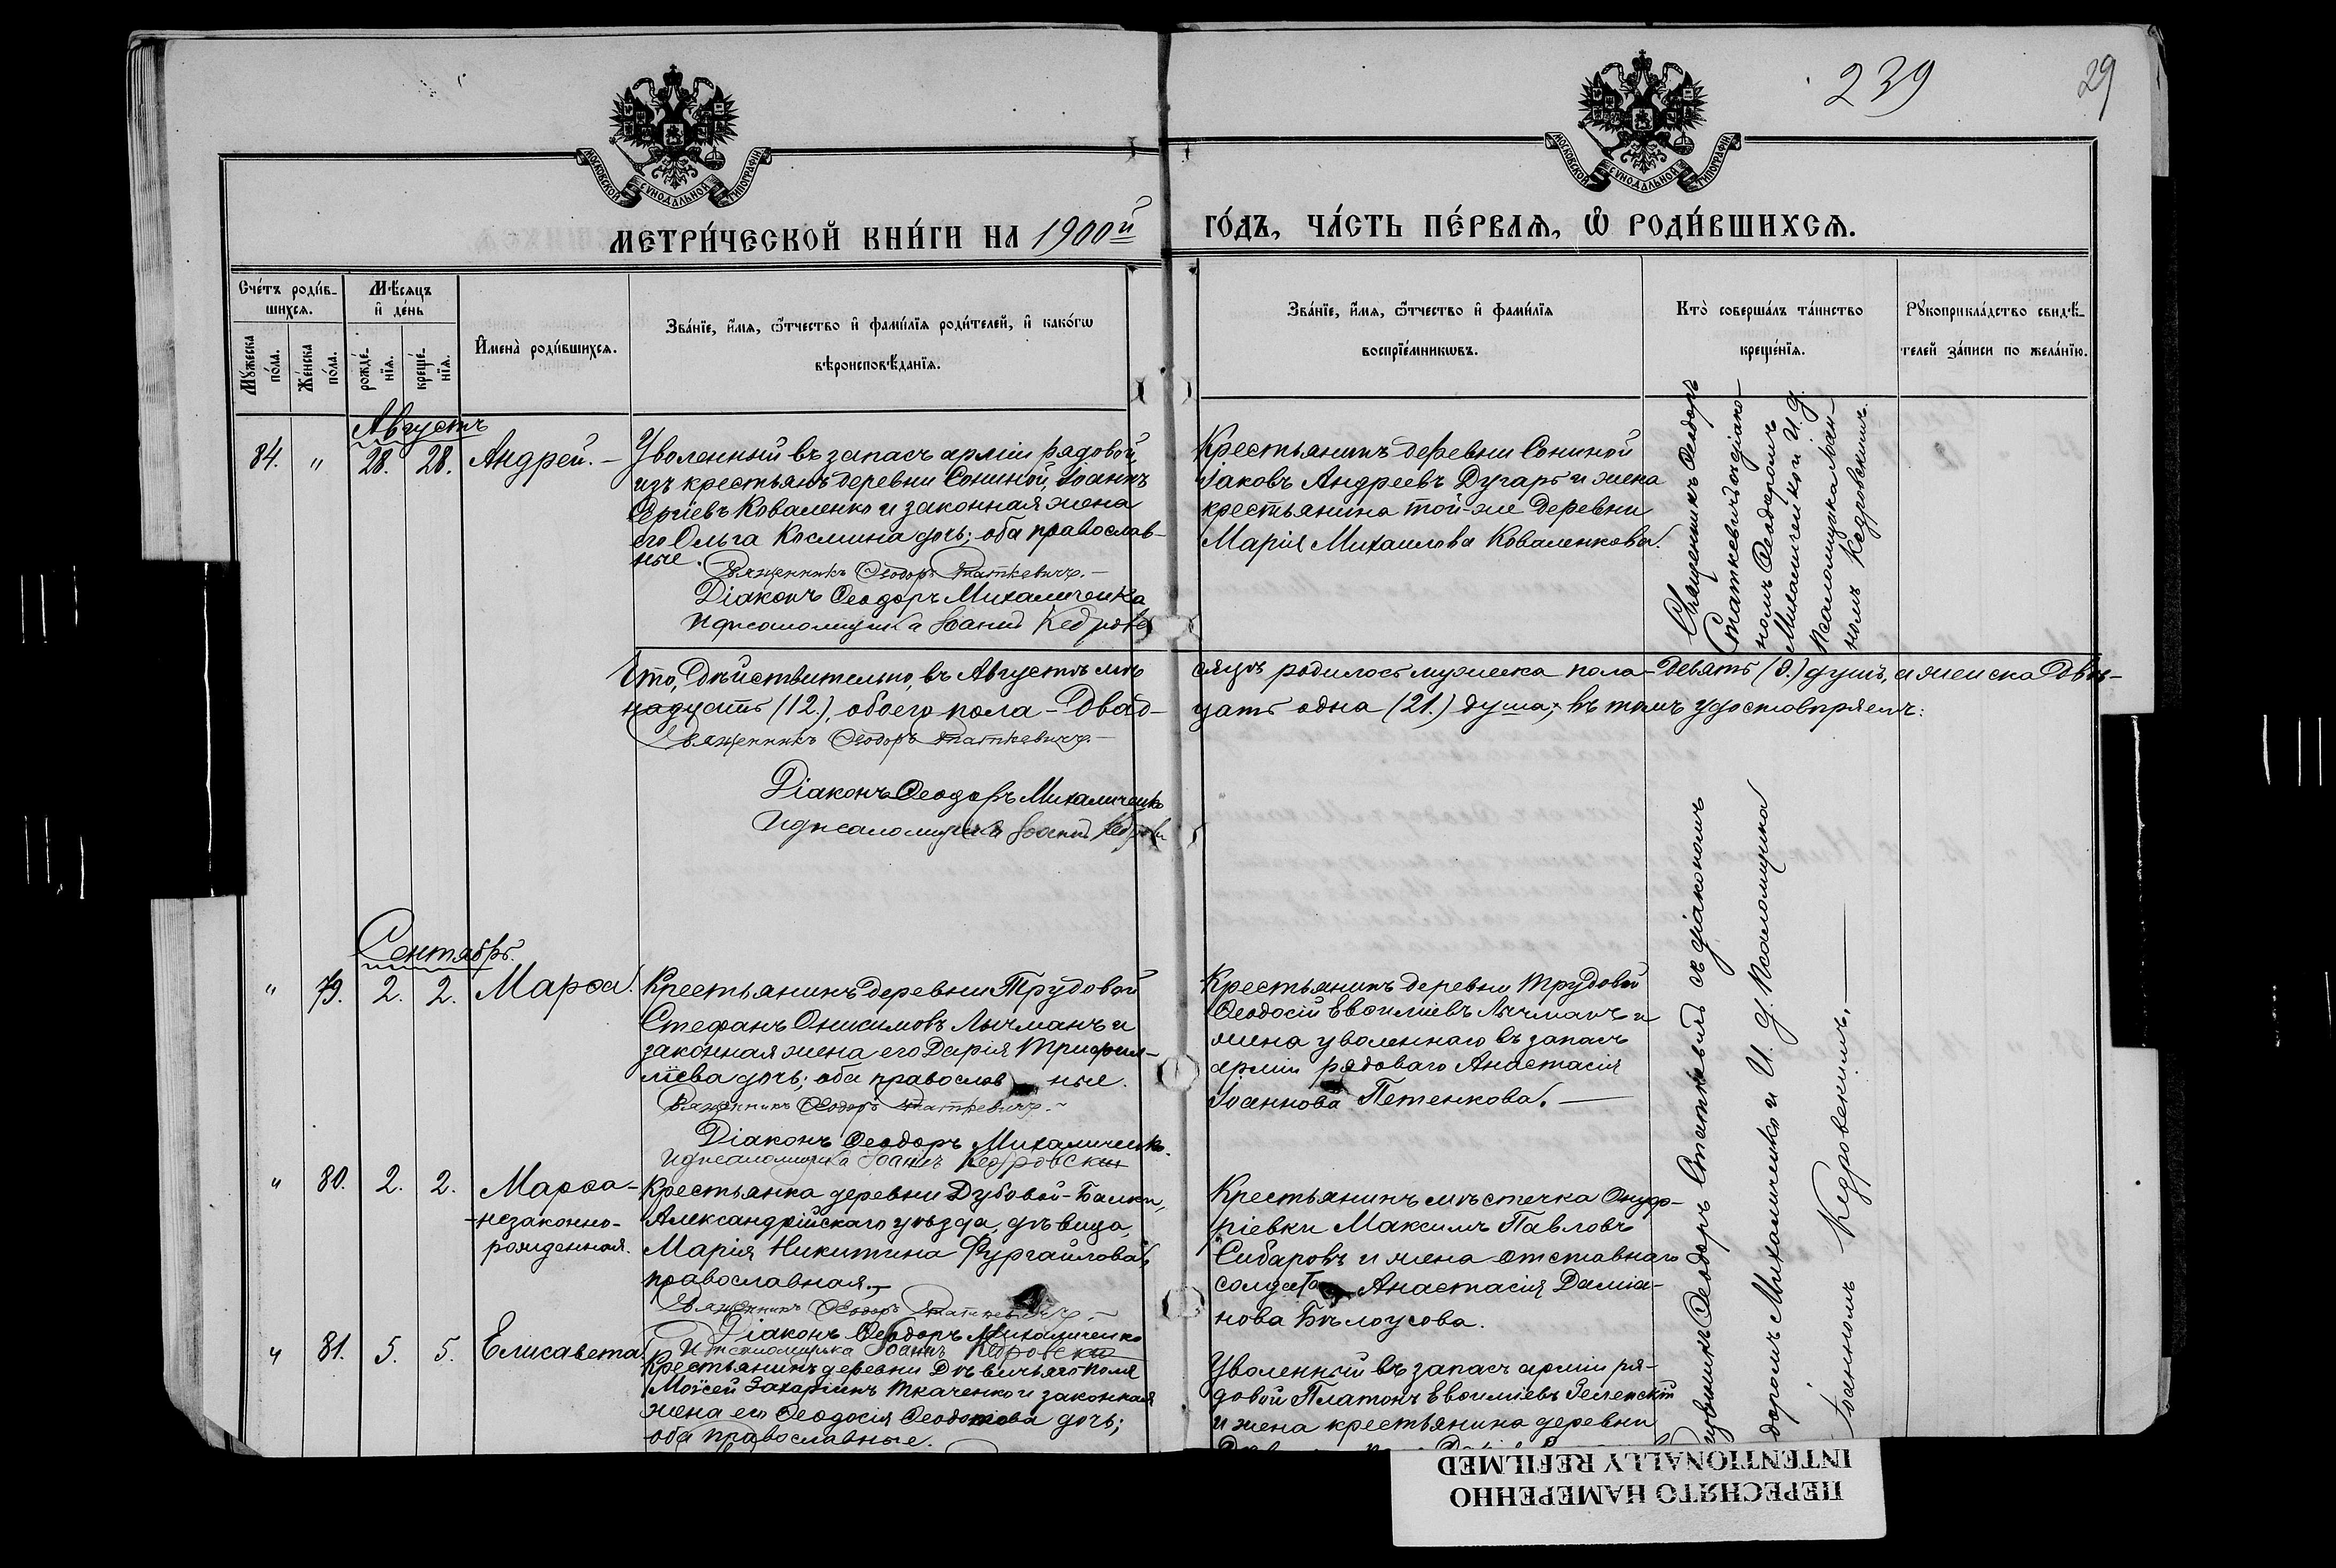 239
29
МОСКОВСКОЙ СУНОДАЛЬНОЙ ТИПОГРАФІИ
МОСКОВСКОЙ СУНОДАЛЬНОЙ ТИПОГРАФІИ
МЕТРИ́ЧЕСКОЙ КНИ́ГИ НА 1900й
ГО́ДЪ, ЧА́СТЬ ПЕ́РВАѦ, Ѽ РОДИ́ВШИХСѦ.
Сче́тъ роди́в-
шихсѧ.
Мѣ́сѧцъ
и҆ де́нь
Мꙋ́жеска по́ла.
Же́нска по́ла.
рожде́-нїѧ.
креще́-нїѧ.
И҆мена̀ роди́вшихсѧ.
Зва́нїе, и҆́мѧ, ѻ҆́тчество и҆ фами́лїѧ роди́телей, и҆ како́гѡ
вѣроисповѣ́данїѧ.
Зва́нїе, и҆́мѧ, ѻ҆́тчество и҆ фами́лїѧ
воспрїе́мникѡвъ.
Кто̀ соверша́лъ та́инство
креще́нїѧ.
Рꙋкоприкла́дство свидѣ́-
телей за́писи по жела́нїю.
Августъ
84. " 28. 28. Андрей. —
Уволенный въ запасъ арміи рядовой
изъ крестьянъ деревни Сониной, Іоаннъ
Сергіевъ Коваленко и законная жена
его Ольга Космина дочь; оба православ-
ные.
Священникъ Ѳеодоръ Статкевичъ. —
Діаконъ Ѳеодоръ Михаличенко
И д псаломщика Іоаннъ Кедровск
Крестьянинъ деревни Сониной
Іаковъ Андреевъ Дугарь и жена
крестьянина той-же деревни
Марія Михаилова Коваленкова.
Священникъ Ѳеодоръ
Статкевичъ съ діако-
номъ Ѳеодоромъ
Михаличенкой и И. д.
псаломщика Іоан-
номъ Кедровскимъ.
Что, дѣйствительно, въ Августѣ мѣ-
сяцѣ родилось мужеска пола - девять (9.) душъ, а женска двѣ-
надцать (12.), обоего пола - двад-
цать одна (21.) душа; въ томъ удостовѣряемъ:
Священникъ Ѳеодоръ Статкевичъ. —
Діаконъ Ѳеодоръ Михаличенко
И д псаломщика Іоаннъ Кедровск
Сентябрь.
" 79. 2. 2. Марѳа.
Крестьянинъ деревни Трудовой
Стефанъ Онисимовъ Лычманъ и
законная жена его Дарія Трифил-
ліева дочь; оба православ ные.
Священникъ Ѳеодоръ Статкевичъ. —
Діаконъ Ѳеодоръ Михаличенко.
И д псаломщика Іоаннъ Кедровскій
Крестьянинъ деревни Трудовой
Ѳеодосій Евѳиміевъ Лычманъ и
жена уволеннаго въ запасъ
арміи рядоваго Анастасія
Іоаннова Петенкова. —
" 80. 2. 2. Марѳа -
-незаконно-
рожденная.
Крестьянка деревни Дубовой-Балки,
Александрійскаго уѣзда, дѣвица,
Марія Никитина Фургайлова,
православная. —
Священникъ Ѳеодоръ Статкевичъ. —
Діаконъ Ѳеодоръ Михаличенко
И д псаломщика Іоаннъ Кедровскій
Крестьянинъ мѣстечка Онуф-
ріевки Максимъ Павловъ
Сибаровъ и жена отставнаго
солдата Анастасія Даміа-
нова Бѣлоусова.
" 81. 5. 5. Елисавета
Крестьянинъ деревни Дѣвичьяго Поля
Моѵсей Захаріинъ Ткаченко и законная
жена его Ѳеодосія Ѳеодотова дочь;
оба православные.
Уволенный въ запасъ арміи ря-
довой Платонъ Евѳиміевъ Зеленскій
и жена крестьянина деревни
Ѳеодоръ Статкевичъ съ діакономъ
Михаличенко и И. д. псаломщика
Іоанномъ Кедровскимъ. —
ПЕРЕСНЯТО НАМЕРЕННО
INTENTIONALLY REFILMED